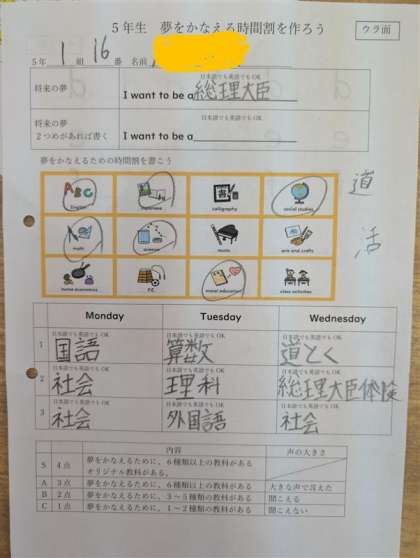 5年生 夢をかなえる時間割を作ろう
ウラ面
5年 1 組 16 番 名前
将来の夢
日本語でも英語でもOK
I want to be a 総理大臣
将来の夢
2つめがあれば書く
日本語でも英語でもOK
I want to be a
夢をかなえるための時間割を書こう
English
Japanese
calligraphy
social studies
道
math
science
music
arts and crafts
活
home economics
P.E.
moral education
class activities
Monday Tuesday Wednesday
日本語でも英語でもOK 日本語でも英語でもOK 日本語でも英語でもOK
1 国語 算数 道とく
日本語でも英語でもOK 日本語でも英語でもOK 日本語でも英語でもOK
2 社会 理科 総理大臣体験
日本語でも英語でもOK 日本語でも英語でもOK 日本語でも英語でもOK
3 社会 外国語 社会
内容 声の大きさ
S 4点 夢をかなえるために、6種類以上の教科がある
オリジナル教科がある。
A 3点 夢をかなえるために、6種類以上の教科がある 大きな声で言えた
B 2点 夢をかなえるために、3～5種類の教科がある 聞こえる
C 1点 夢をかなえるために、1～2種類の教科がある 聞こえない